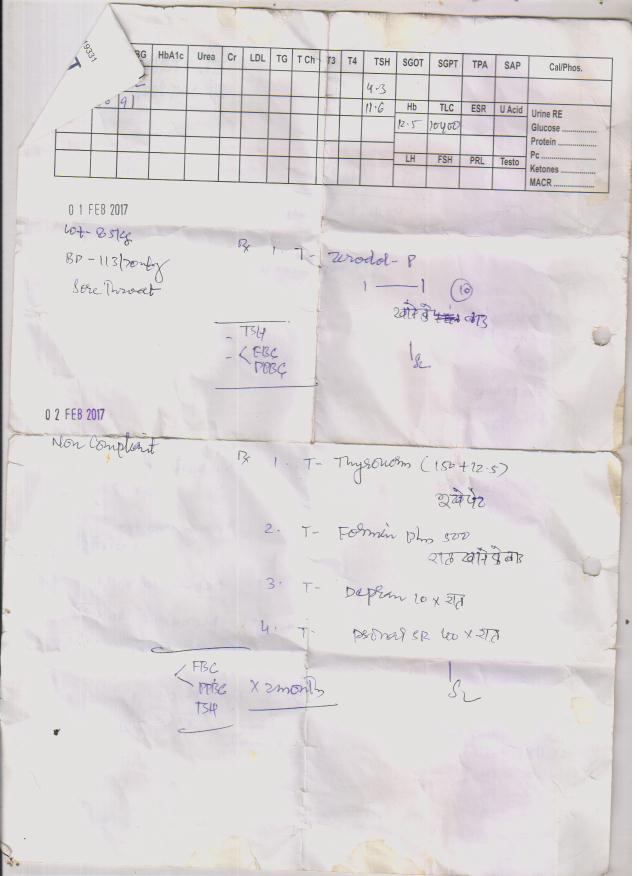 19331
BG HbA1c Urea Cr LDL TG T Ch T3 T4 TSH SGOT SGPT TPA SAP Cal/Phos.
4.3
91 11.6 Hb TLC ESR U Acid Urine RE
12.5 10400 Glucose ..............
Protein ..............
LH FSH PRL Testo Pc ..............
Ketones ..............
MACR ..............
01 FEB 2017
Wt- 85kg
BP - 113/70mmHg
Sore Throat
Rx 1. T- Zerodol-P
1 — 1 (10)
खाने के बाद
- TSH
- < FBG
PPBG
02 FEB 2017
Non Compliant
Rx 1. T- Thyronorm (150+12.5)
2. T- Formin plus 500
रात खाने के बाद
3. T- 10 x रात
4. T- SR 400 x रात
< FBG
PPBG x 2 months
TSH